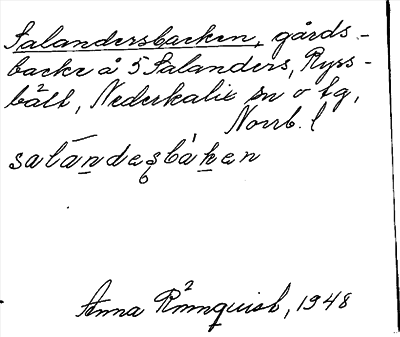 Salandersbacken, gårds-
backe å 5 Salanders, Ryss-
bält, Nederkalix sn o tg,
Norrb. l
salándesbàken
Anna Rönnquist, 1948